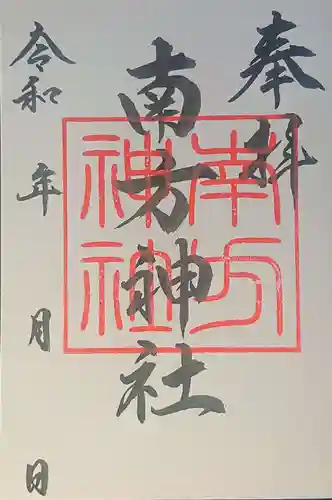 奉拝
南方神社
南方
神社
令和 年 月 日